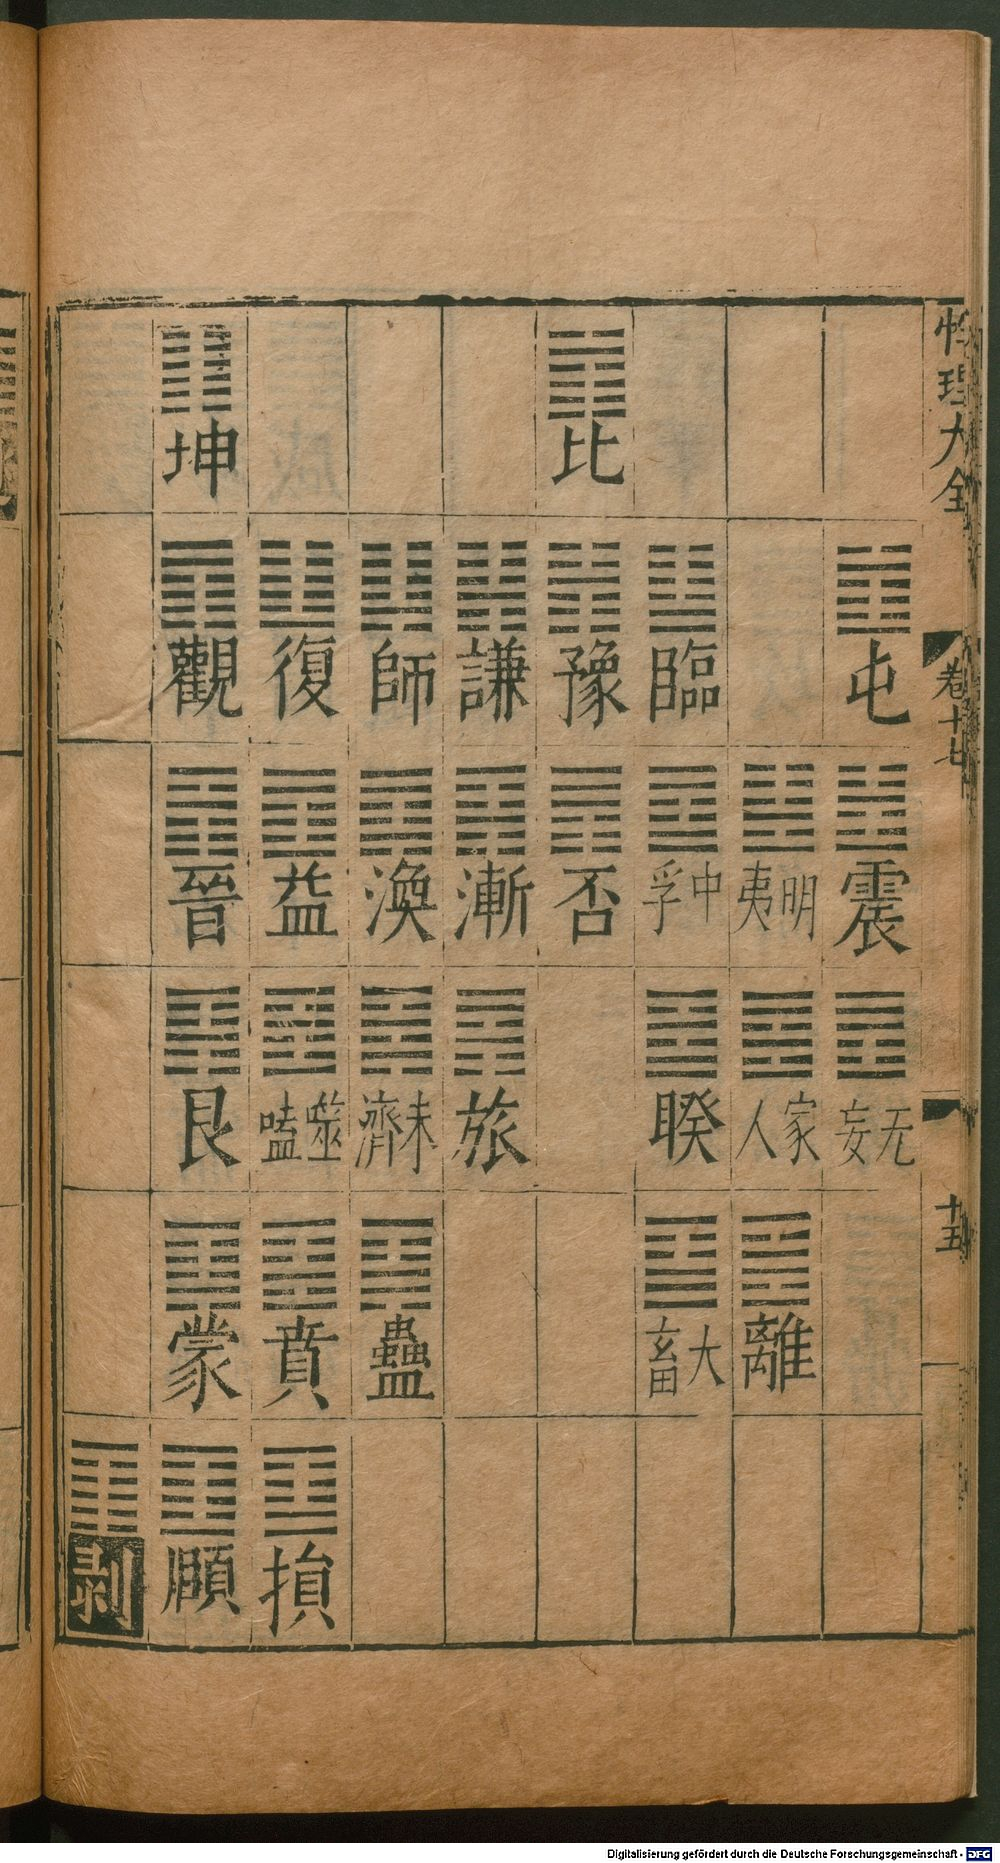 性理大全
卷十七
十五
屯
震
无妄
明夷
家人
離
臨
中孚
睽
大畜
比
豫
否
謙
漸
旅
師
渙
未濟
蠱
復
益
噬嗑
賁
損
坤
觀
晉
艮
蒙
頤
剥
Digitalisierung gefördert durch die Deutsche Forschungsgemeinschaft - DFG